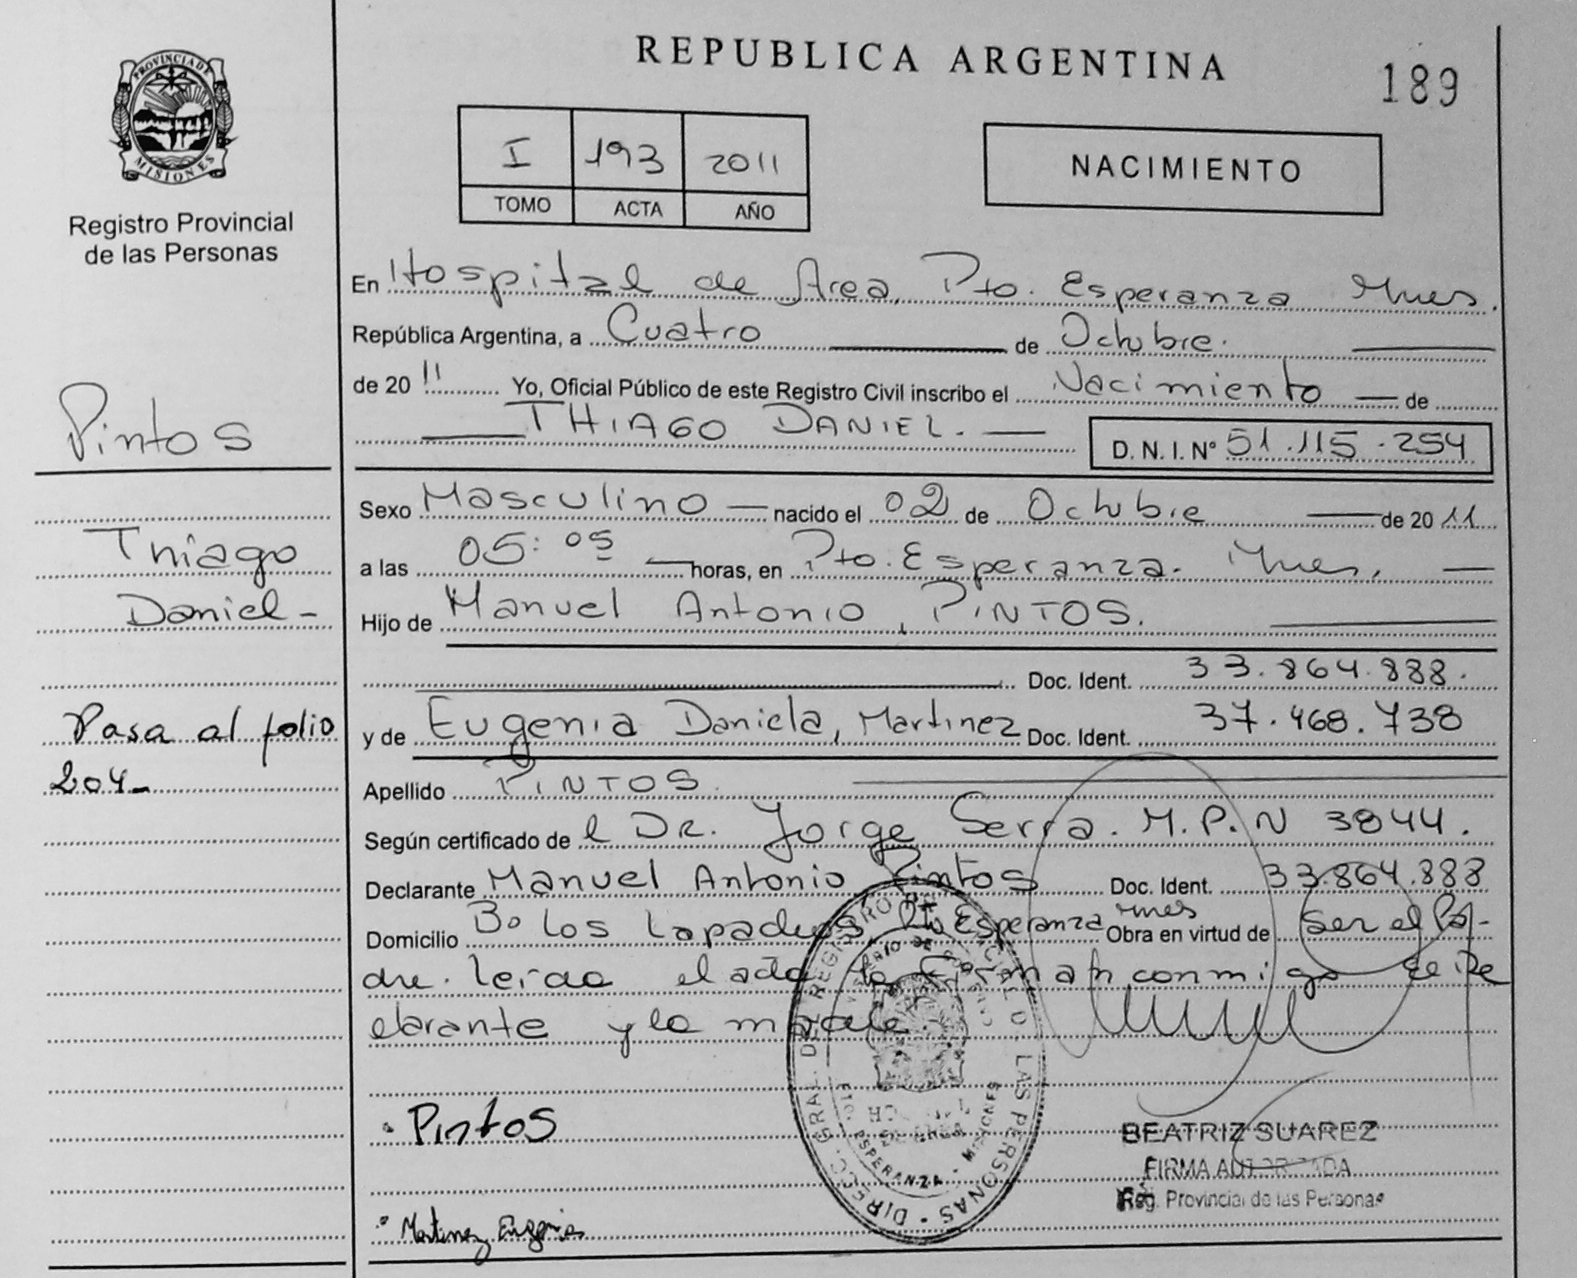 REPUBLICA ARGENTINA
189
PROVINCIA DE MISIONES
Registro Provincial
de las Personas
I 193 2011
TOMO ACTA AÑO
NACIMIENTO
En Hospital de Area, Pto. Esperanza Mnes.
República Argentina, a Cuatro de Octubre.
de 2011 Yo, Oficial Público de este Registro Civil inscribo el Nacimiento de
THIAGO DANIEL.
D. N. I. Nº 51.115.254
Pintos
Thiago
Daniel-
Pasa al folio
204-
Sexo Masculino nacido el 02 de Octubre de 2011
a las 05:05 horas, en Pto. Esperanza. Mnes.
Hijo de Manuel Antonio, PINTOS.
Doc. Ident. 33.864.888.
y de Eugenia Daniela, Martinez Doc. Ident. 37.468.738
Apellido PINTOS
Según certificado de l DR. Jorge Serra. M.P.N 3844.
Declarante Manuel Antonio Pintos Doc. Ident. 33.864.888
Domicilio Bo Los Lapachos Pto Esperanza Mnes Obra en virtud de ser el Pa-
dre. leida el acta la firman conmigo el De
clarante y la madre.
Pintos
Martinez Eugenia
BEATRIZ SUAREZ
FIRMA AUTORIZADA
Reg. Provincial de las Personas